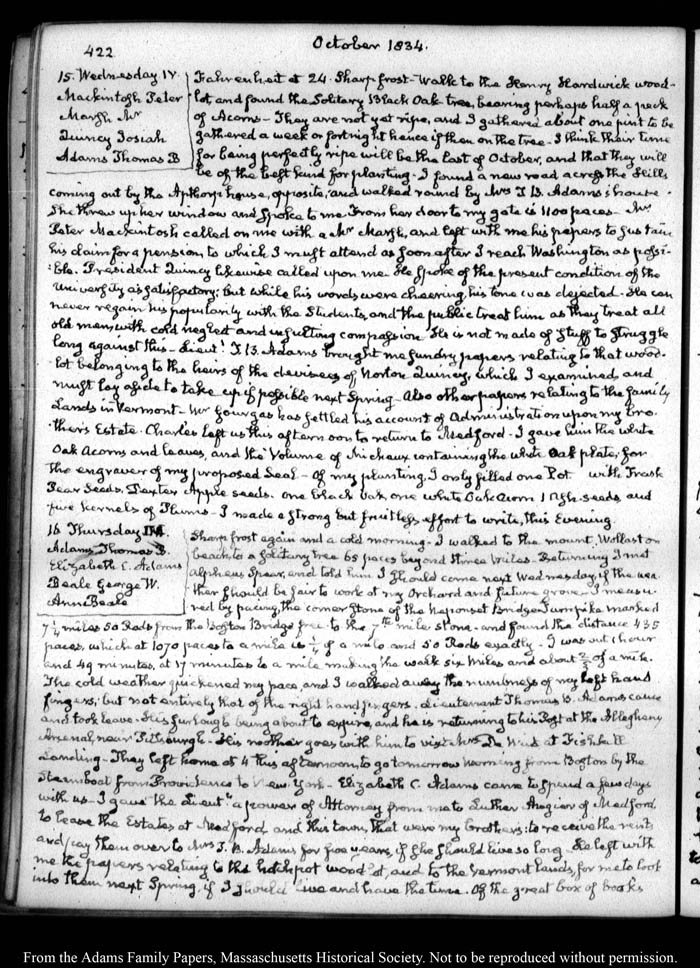 422
October 1834.
15. Wednesday IV.
Mackintosh Peter
Marsh Mr
Quincy Josiah
Adams Thomas B
Fahrenheit at 24. Sharp frost- Walk to the Henry Hardwick wood-
lot and found the Solitary Black Oak tree, bearing perhaps half a peck
of Acorns- They are not yet ripe, and I gathered about one pint to be
gathered a week or fortnight hence if then on the tree- I think their time
for being perfectly ripe will be the last of October, and that they will
be of the best kind for planting- I found a new road across the Hills
coming out by the Apthorp house, opposite, and walked round by Mrs T. B. Adams's house.
She threw up her window and spoke to me From her door to my gate is 1100 paces- Mr
Peter Mackintosh called on me with a Mr Marsh, and left with me his papers to sustain
his claim for a pension, to which I must attend as soon after I reach Washington as possi-
:ble. President Quincy likewise called upon me. He spoke of the present condition of the
University as satisfactory; but while his words were cheering, his tone was dejected- He can
never regain his popularity with the Students, and the public treat him as they treat all
old men, with cold neglect and insulting compassion. He is not made of stuff to struggle
long against this- Lieut! T. B. Adams brought me sundry papers relating to that wood-
lot belonging to the heirs of the devisees of Norton Quincy, which I examined, and
must lay aside to take up if possible next Spring- Also other papers relating to the family
Lands in Vermont- Mr Gourgas has settled his account of Administration upon my bro-
thers Estate. Charles left us this afternoon to return to Medford- I gave him the white
Oak Acorns and leaves, and the Volume of Michaux containing the white Oak plate, for
the engraver of my proposed Seal- Of my planting, I only filled one Pot with Trask
Pear Seeds, Baxter Apple seeds. one black Oak one white Oak acorn seeds and
five kernels of Plums- I made a strong but fruitless effort to write, this Evening.
16 Thursday IV.
Adams Thomas B.
Elizabeth C. Adams
Beale George W.
Ann Beale
Sharp frost again and a cold morning- I walked to the mount Wollaston
beach, to a solitary tree 65 paces beyond three Miles- Returning I met
Alpheus Spear, and told him I should come next Wednesday, if the wea-
ther should be fair to work at my Orchard and future grove- I measu-
red by pacing, the corner stone of the Neponset Bridge Turnpike marked
7½ miles 50 Rods from the Boston Bridge free to the 7th mile stone- and found the distance 435
paces, which at 1070 paces to a mile is ¼ of a mile and 50 Rods exactly- I was out 1 hour
and 49 minutes, at 17 minutes to a mile making the walk six Miles and about ⅔ of a mile.
The cold weather quickened my pace, and I walked away the numbness of my left hand
fingers; but not entirely that of the right hand fingers. Lieutenant Thomas B. Adams came
and took leave- His furlough being about to expire, and he is returning to his Post at the Allegheny
Arsenal, near Pittsburgh- His mother goes with him to visit Mrs De Wint at Fishkill
Landing- They left home at 4 this afternoon, to go tomorrow morning from Boston by the
Steamboat from Providence to New-York- Elizabeth C. Adams came to spend a few days
with us- I gave the Lieut.t a power of Attorney from me to Luther Angier of Medford,
to lease the Estates at Medford, and this town, that were my brothers: to receive the rents
and pay them over to Mrs T. B. Adams for five years, if she should live so long- He left with
me the papers relating to the hotchpot wood lot, and to the Vermont lands, for me to look
into them next Spring, if I should live and have the time. Of the great box of books
From the Adams Family Papers, Massachusetts Historical Society. Not to be reproduced without permission.